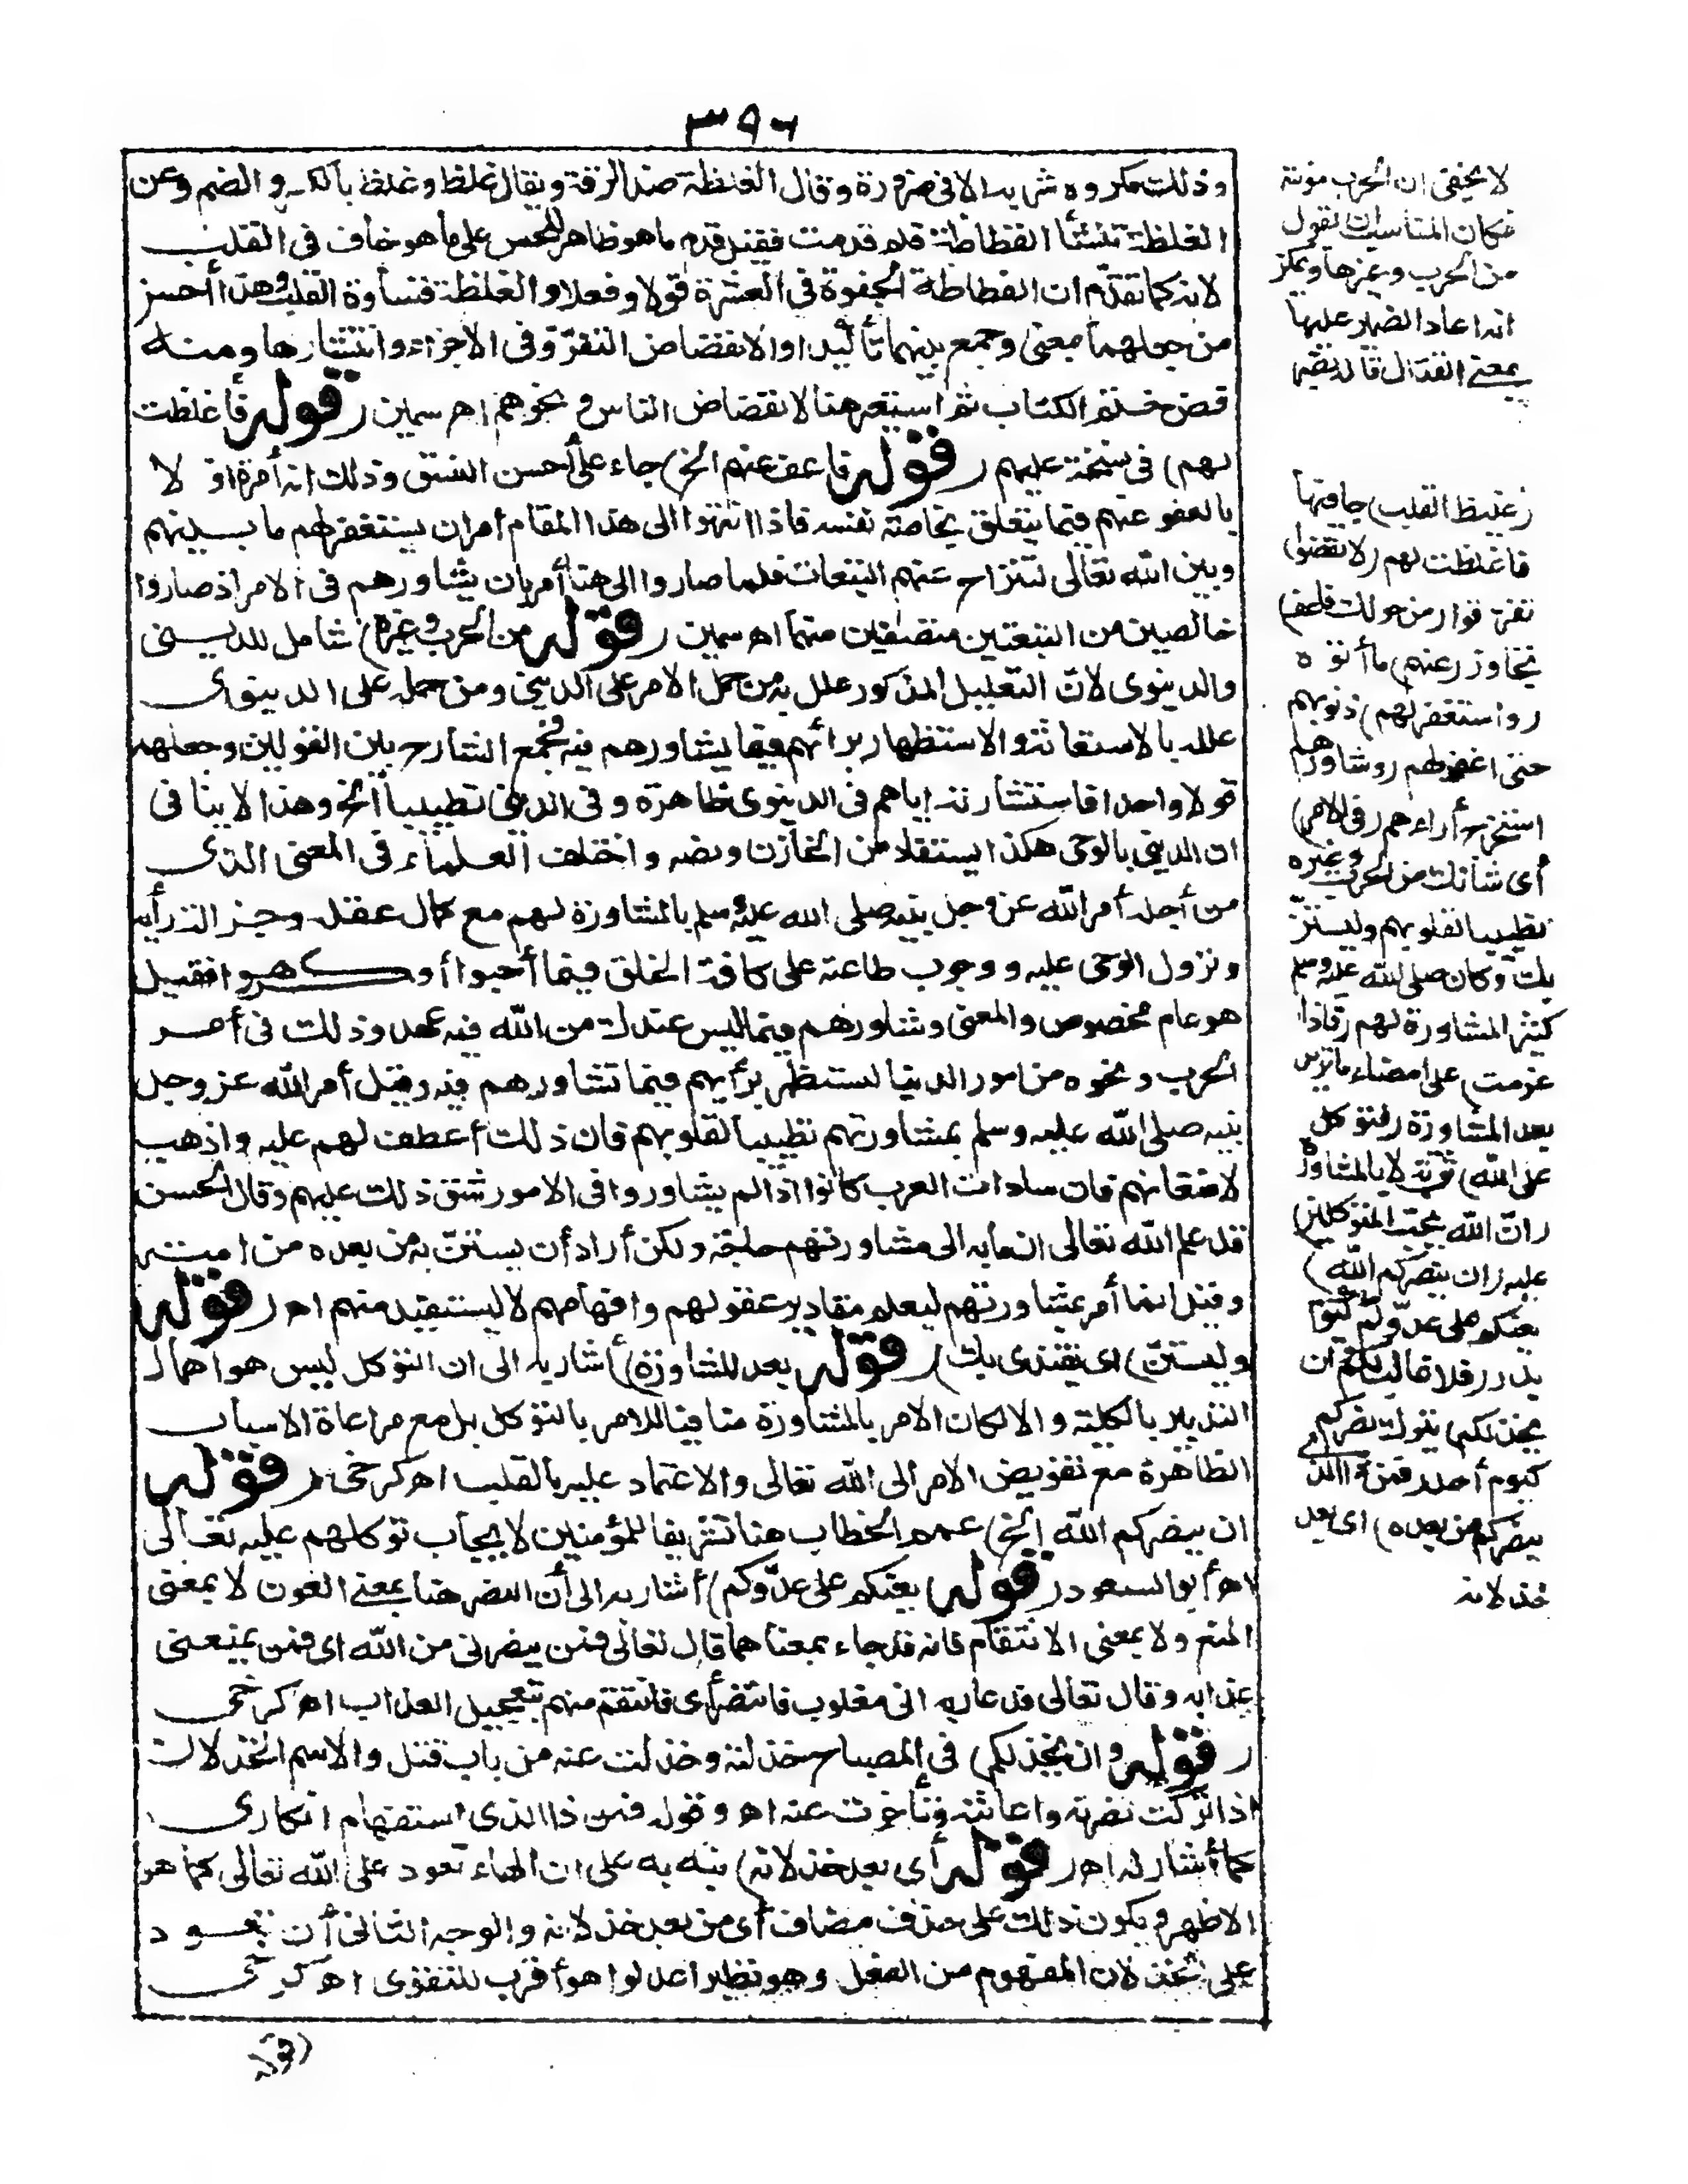 ٣٩٦
وذلك مكروه شديدا الا فى ضرورة وقال الغلظة ضد الرقة ويقال غلظ وغلظ بالكسر والضم وعن
الغلظة تنشأ الفظاظة فلم قدمت فقيل قدم ما هو ظاهر للحس على ما هو خاف فى القلب
لانه كما تقدّم ان الفظاظة الجفوة فى العشرة قولا وفعلا والغلظة قساوة القلب وهذا أحسن
من جعلهما بمعنى وجمع بينهما تأكيدا والانفضاض التفرّق فى الاجزاء وانتشارها ومنه
فض ختم الكتاب ثم استعير هنا لانفضاض الناس ونحوهم اهـ سمين (قوله فأغلظت
لهم) فى نسخة عليهم (قوله فاعف عنهم الخ) جاء على أحسن النسق وذلك انه أمر أولا
بالعفو عنهم فيما يتعلق بخاصة نفسه فاذا انتهوا الى هذا المقام أمر ان يستغفر لهم ما بينهم
وبين الله تعالى لتنزاح عنهم التبعات فلما صاروا الى هنا أمر بان يشاورهم فى الامر اذ صاروا
خالصين من التبعتين متصفين منهما اهـ سمين (قوله من الحرب وغيره) شامل للدينى
والدنيوى لانّ التعليل المذكور علل به من حمل الامر على الدينى ومن حمله على الدنيوى
علله بالاستعانة والاستظهار برأئهم فيما يشاورهم فيه فجمع الشارح بين القولين وجعلهما
قولا واحدا فاستشارته اياهم فى الدنيوى ظاهرة وفى الدينى تطييبا الخ وهذا لا ينافى
ان الدينى بالوحى هكذا يستفاد من الخازن ونصه واختلف العلماء فى المعنى الذى
من أجله أمر الله عز وجل نبيه صلى الله عليه وسلم بالمشاورة لهم مع كمال عقله وجزالة رأيه
ونزول الوحى عليه ووجوب طاعته على كافة الخلق فيما أحبوا أو كرهوا فقيل
هو عام مخصوص والمعنى وشاورهم فيما ليس عندك من الله فيه عهد وذلك فى أمر
الحرب ونحوه من امور الدنيا لتستظهر برأيهم فيما تشاورهم فيه وقيل أمر الله عز وجل
نبيه صلى الله عليه وسلم بمشاورتهم تطييبا لقلوبهم فان ذلك أعطف لهم عليه واذهب
لاضغانهم فان سادات العرب كانوا اذا لم يشاوروا فى الامور شق ذلك عليهم وقال الحسن
قد علم الله تعالى ان ما به الى مشاورتهم حاجة ولكن أراد أن يستنّ به من بعده من امته
وقيل انما أمر بمشاورتهم ليعلم مقادير عقولهم وافهامهم لا ليستفيد منهم اهـ (قوله
وليستنّ) اى يقتدى بك (قوله بعد المشاورة) أشار به الى ان التوكل ليس هو اهمال
التدبير بالكلية والا لكان الامر بالمشاورة منافيا للامر بالتوكل بل مع مراعاة الاسباب
الظاهرة مع تفويض الامر الى الله تعالى والاعتماد عليه بالقلب اهـ كرخى (قوله
ان ينصركم الله الخ) عمم الخطاب هنا تشريفا للمؤمنين لايجاب توكلهم عليه تعالى
اهـ أبو السعود (قوله يعنكم على عدّوكم) أشار به الى أن النصر هنا بمعنى العون لا بمعنى
المنع ولا بمعنى الانتقام فانه قد جاء بمعناهما قال تعالى فمن ينصرنى من الله اى فمن يمنعنى
عذابه وقال تعالى فدعا ربه انى مغلوب فانتصر أى فانتقم منهم بتعجيل العذاب اهـ كرخى
(قوله وان يخذلكم) فى المصباح خذلته وخذلت عنه من باب قتل والاسم الخذلان
اذا تركت نصرته واعانته وتأخرت عنه اهـ وقوله فمن ذا الذى استفهام انكارى
كما أشار له اهـ (قوله أى بعد خذلانه) نبه به على ان الهاء تعود على الله تعالى كما هو
الاظهر ويكون ذلك على حذف مضاف أى من بعد خذلانه والوجه الثانى أن تعود
على الخذلان المفهوم من الفعل وهو نظير اعدلوا هو أقرب للتقوى اهـ كرخى
(قوله
لا يخفى ان الحرب مؤنثة
فكان المناسب ان تقول
من الحرب وغيرها ويمكن
انه اعاد الضمير عليها
بمعنى القتال قاله بعضهم
(غليظ القلب) جافيها
فاغلظت لهم (لانفضوا)
تفرقوا (من حولك فاعف)
تجاوز (عنهم) ما أتوه
(واستغفر لهم) ذنوبهم
حتى اغفر لهم (وشاورهم)
استخرج أراءهم (فى الامر)
أى شأنك من الحرب وغيره
تطييبا لقلوبهم وليستنّ
بك وكان صلى الله عليه وسلم
كثير المشاورة لهم (فاذا
عزمت) على امضاء ما تريد
بعد المشاورة (فتوكل
على الله) ثق به لا بالمشاورة
(انّ الله يحبّ المتوكلين)
عليه (ان ينصركم الله)
يعنكم على عدّوكم كيوم
بدر (فلا غالب لكم وان
يخذلكم) يترك نصركم
كيوم أحد (فمن ذا الذى
ينصركم من بعده) اى بعد
خذلانه